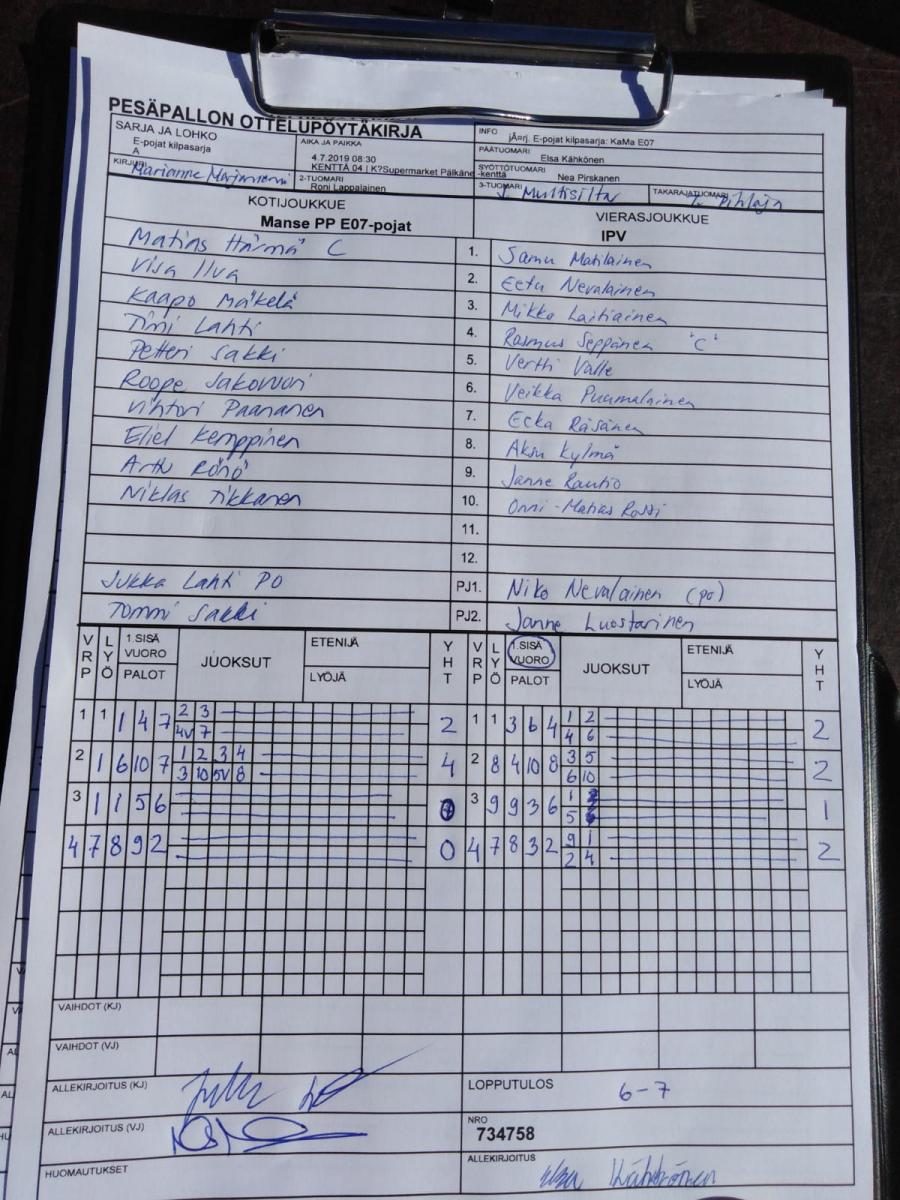 PESÄPALLON OTTELUPÖYTÄKIRJA
SARJA JA LOHKO
E-pojat kilpasarja
A
AIKA JA PAIKKA
4.7.2019 08:30
KENTTÄ 04 | K?Supermarket Pälkäne -kenttä
INFO
jÄrj. E-pojat kilpasarja: KaMa E07
PÄÄTUOMARI
Elsa Kähkönen
SYÖTTÖTUOMARI
Nea Pirskanen
KIRJURI
Marianne Marjanniemi
2-TUOMARI
Roni Lappalainen
3-TUOMARI
J. Multisilta
TAKARAJATUOMARI
T. Pihlaja
KOTIJOUKKUE
Manse PP E07-pojat
VIERASJOUKKUE
IPV
Matias Härmä C 1. Samu Matilainen
Visa Ilva 2. Eetu Nevalainen
Kaapo Mäkelä 3. Mikko Laitiainen
Timi Lahti 4. Rasmus Seppänen "C"
Petteri Sakki 5. Vertti Valle
Roope Jakovuori 6. Veikka Puumalainen
Vihtori Paananen 7. Ecka Räsänen
Eliel Kemppinen 8. Aksu Kylmä
Artu Rönö 9. Janne Rautio
Niklas Tikkanen 10. Onni-Matias Rossi
11.
12.
Jukka Lahti PO PJ1. Niko Nevalainen (po)
Tommi Sakki PJ2. Janne Luostarinen
VRP LYÖ 1.SISÄ VUORO PALOT JUOKSUT ETENIJÄ LYÖJÄ YHT VRP LYÖ 1.SISÄ VUORO PALOT JUOKSUT ETENIJÄ LYÖJÄ YHT
1 1 1 4 7 2 3 2 1 1 3 6 4 1 2 2
4V 7 4 6
2 1 6 10 7 1 2 3 4 4 2 8 4 10 8 3 5 2
3 10 5V 8 6 10
3 1 1 5 6 3 9 9 3 6 1 1
5
4 7 8 9 2 0 4 7 8 3 2 9 1 2
2 4
VAIHDOT (KJ)
VAIHDOT (VJ)
ALLEKIRJOITUS (KJ)
LOPPUTULOS 6-7
ALLEKIRJOITUS (VJ)
NRO
734758
HUOMAUTUKSET
ALLEKIRJOITUS
Elsa Kähkönen